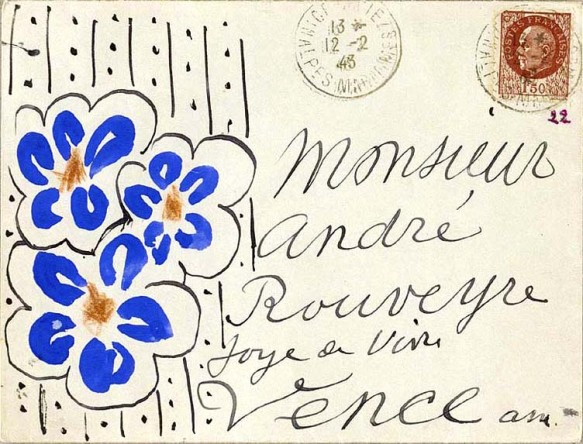 13
12-2
43
POSTES FRANÇAISES
1F50
22
Monsieur
André
Rouveyre
Joye de Vivre
Vence am.